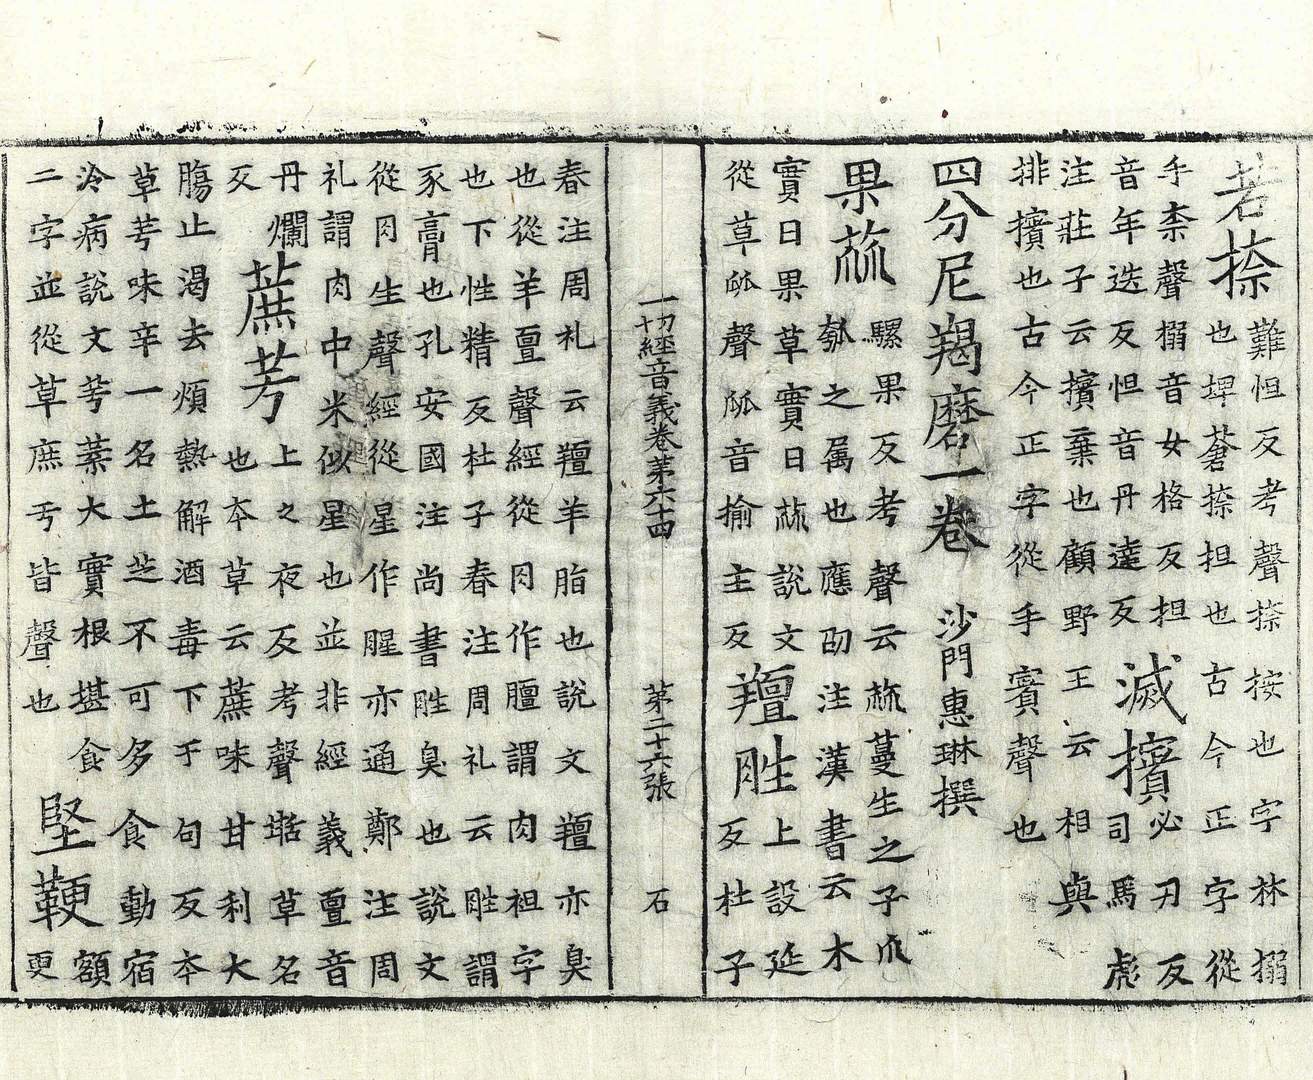 若捺 難怛反考聲捺按也字林搦
也埤蒼捺担也古今正字從
手柰聲搦音女格反担
音年迭反怛音丹達反
滅擯 必刃反
司馬彪
注莊子云擯棄也顧野王云相與
排擯也古今正字從手賓聲也
四分尼羯磨一卷 沙門惠琳撰
果蓏 騾果反考聲云蓏蔓生之子瓜
瓠之属也應劭注漢書云木
實曰果草實曰蓏說文
從草㼌聲㼌音揄主反
羶胜 上設延
反杜子
一切經音義卷第六十四 第二十六張 石
春注周礼云羶羊脂也說文羶亦臭
也從羊亶聲經從月作膻謂肉袒字
也下性精反杜子春注周礼云胜謂
豕膏也孔安國注尚書胜臭也說文
從月生聲經從星作腥亦通鄭注周
礼謂肉中米似星也並非經義亶音
丹爛
反
蔗芋 上之夜反考聲草名
也本草云蔗味甘利大
腸止渴去煩熱解酒毒下于句反本
草芋味辛一名土芝不可多食動宿
冷病說文芋葉大實根堪食
二字並從草庶亏皆聲也
堅鞕 額
更